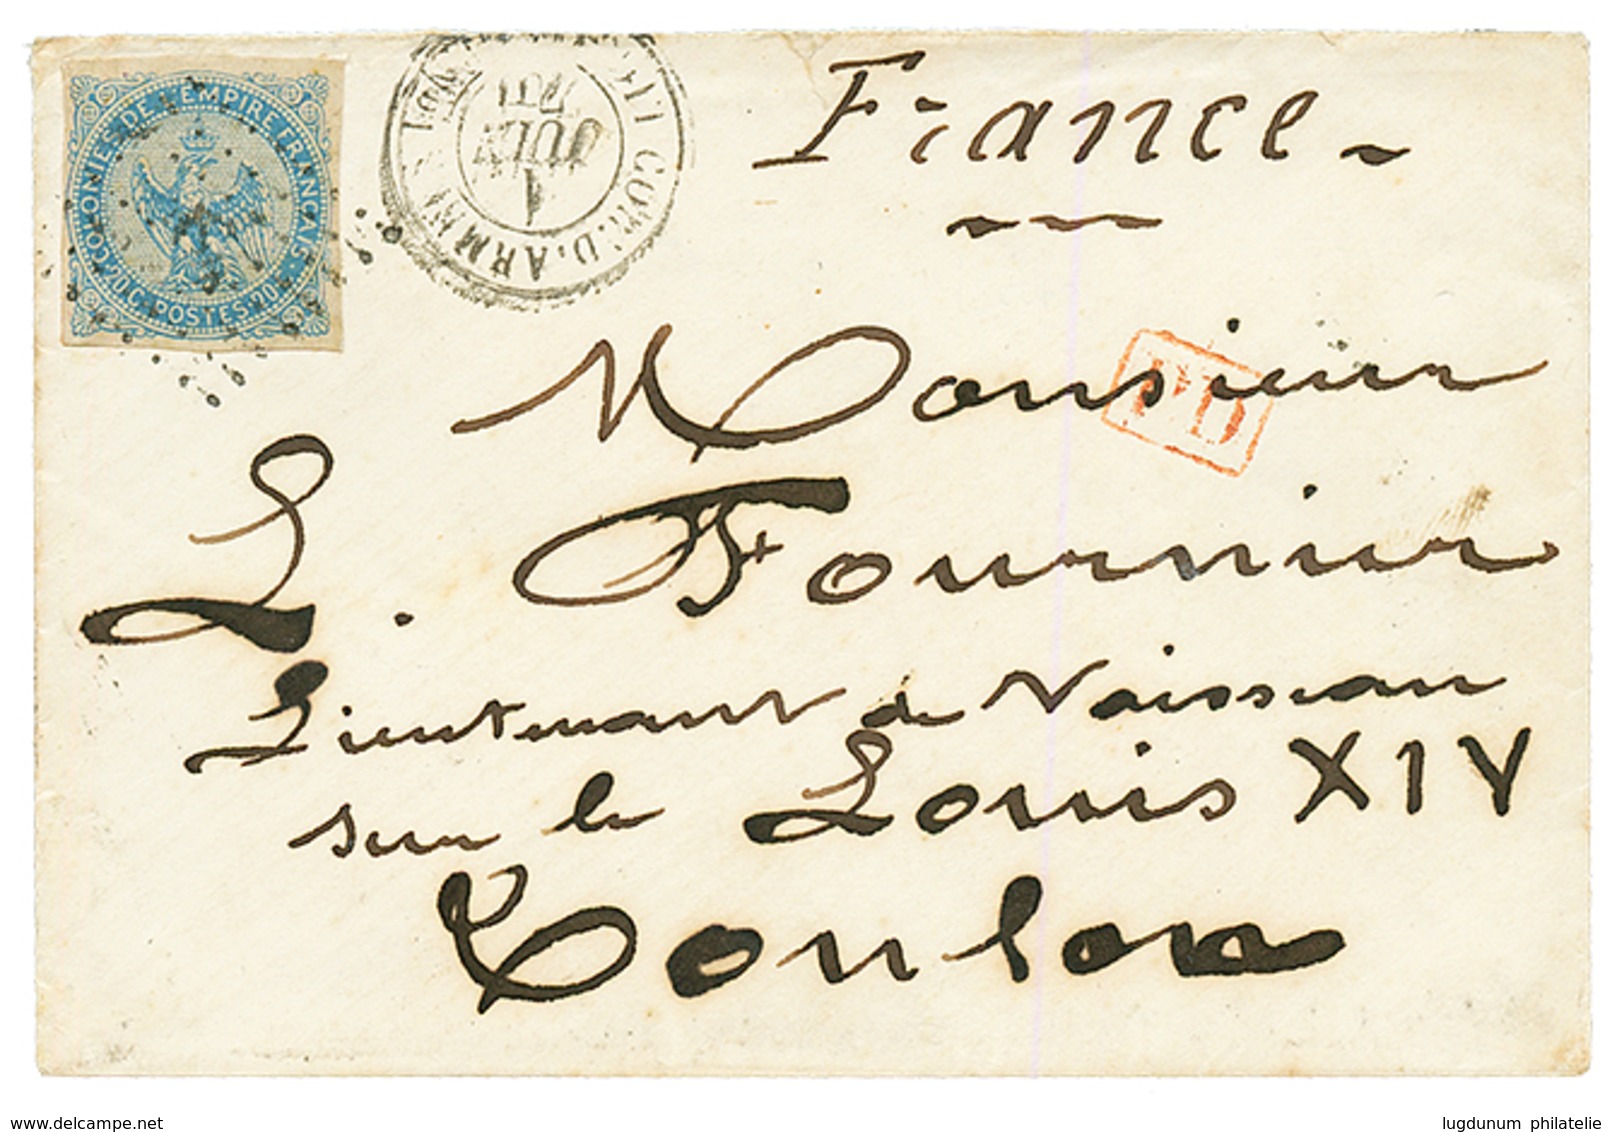 COLONIES DE L'EMPIRE FRANÇAIS
20 C. POSTES. 20
COR. D. ARM
1
JUIN
France
Monsieur
PD
L. Fournier
Lieutenant de Vaisseau
sur le Louis XIV
Toulon
delcampe.net
lugdunum philatelie